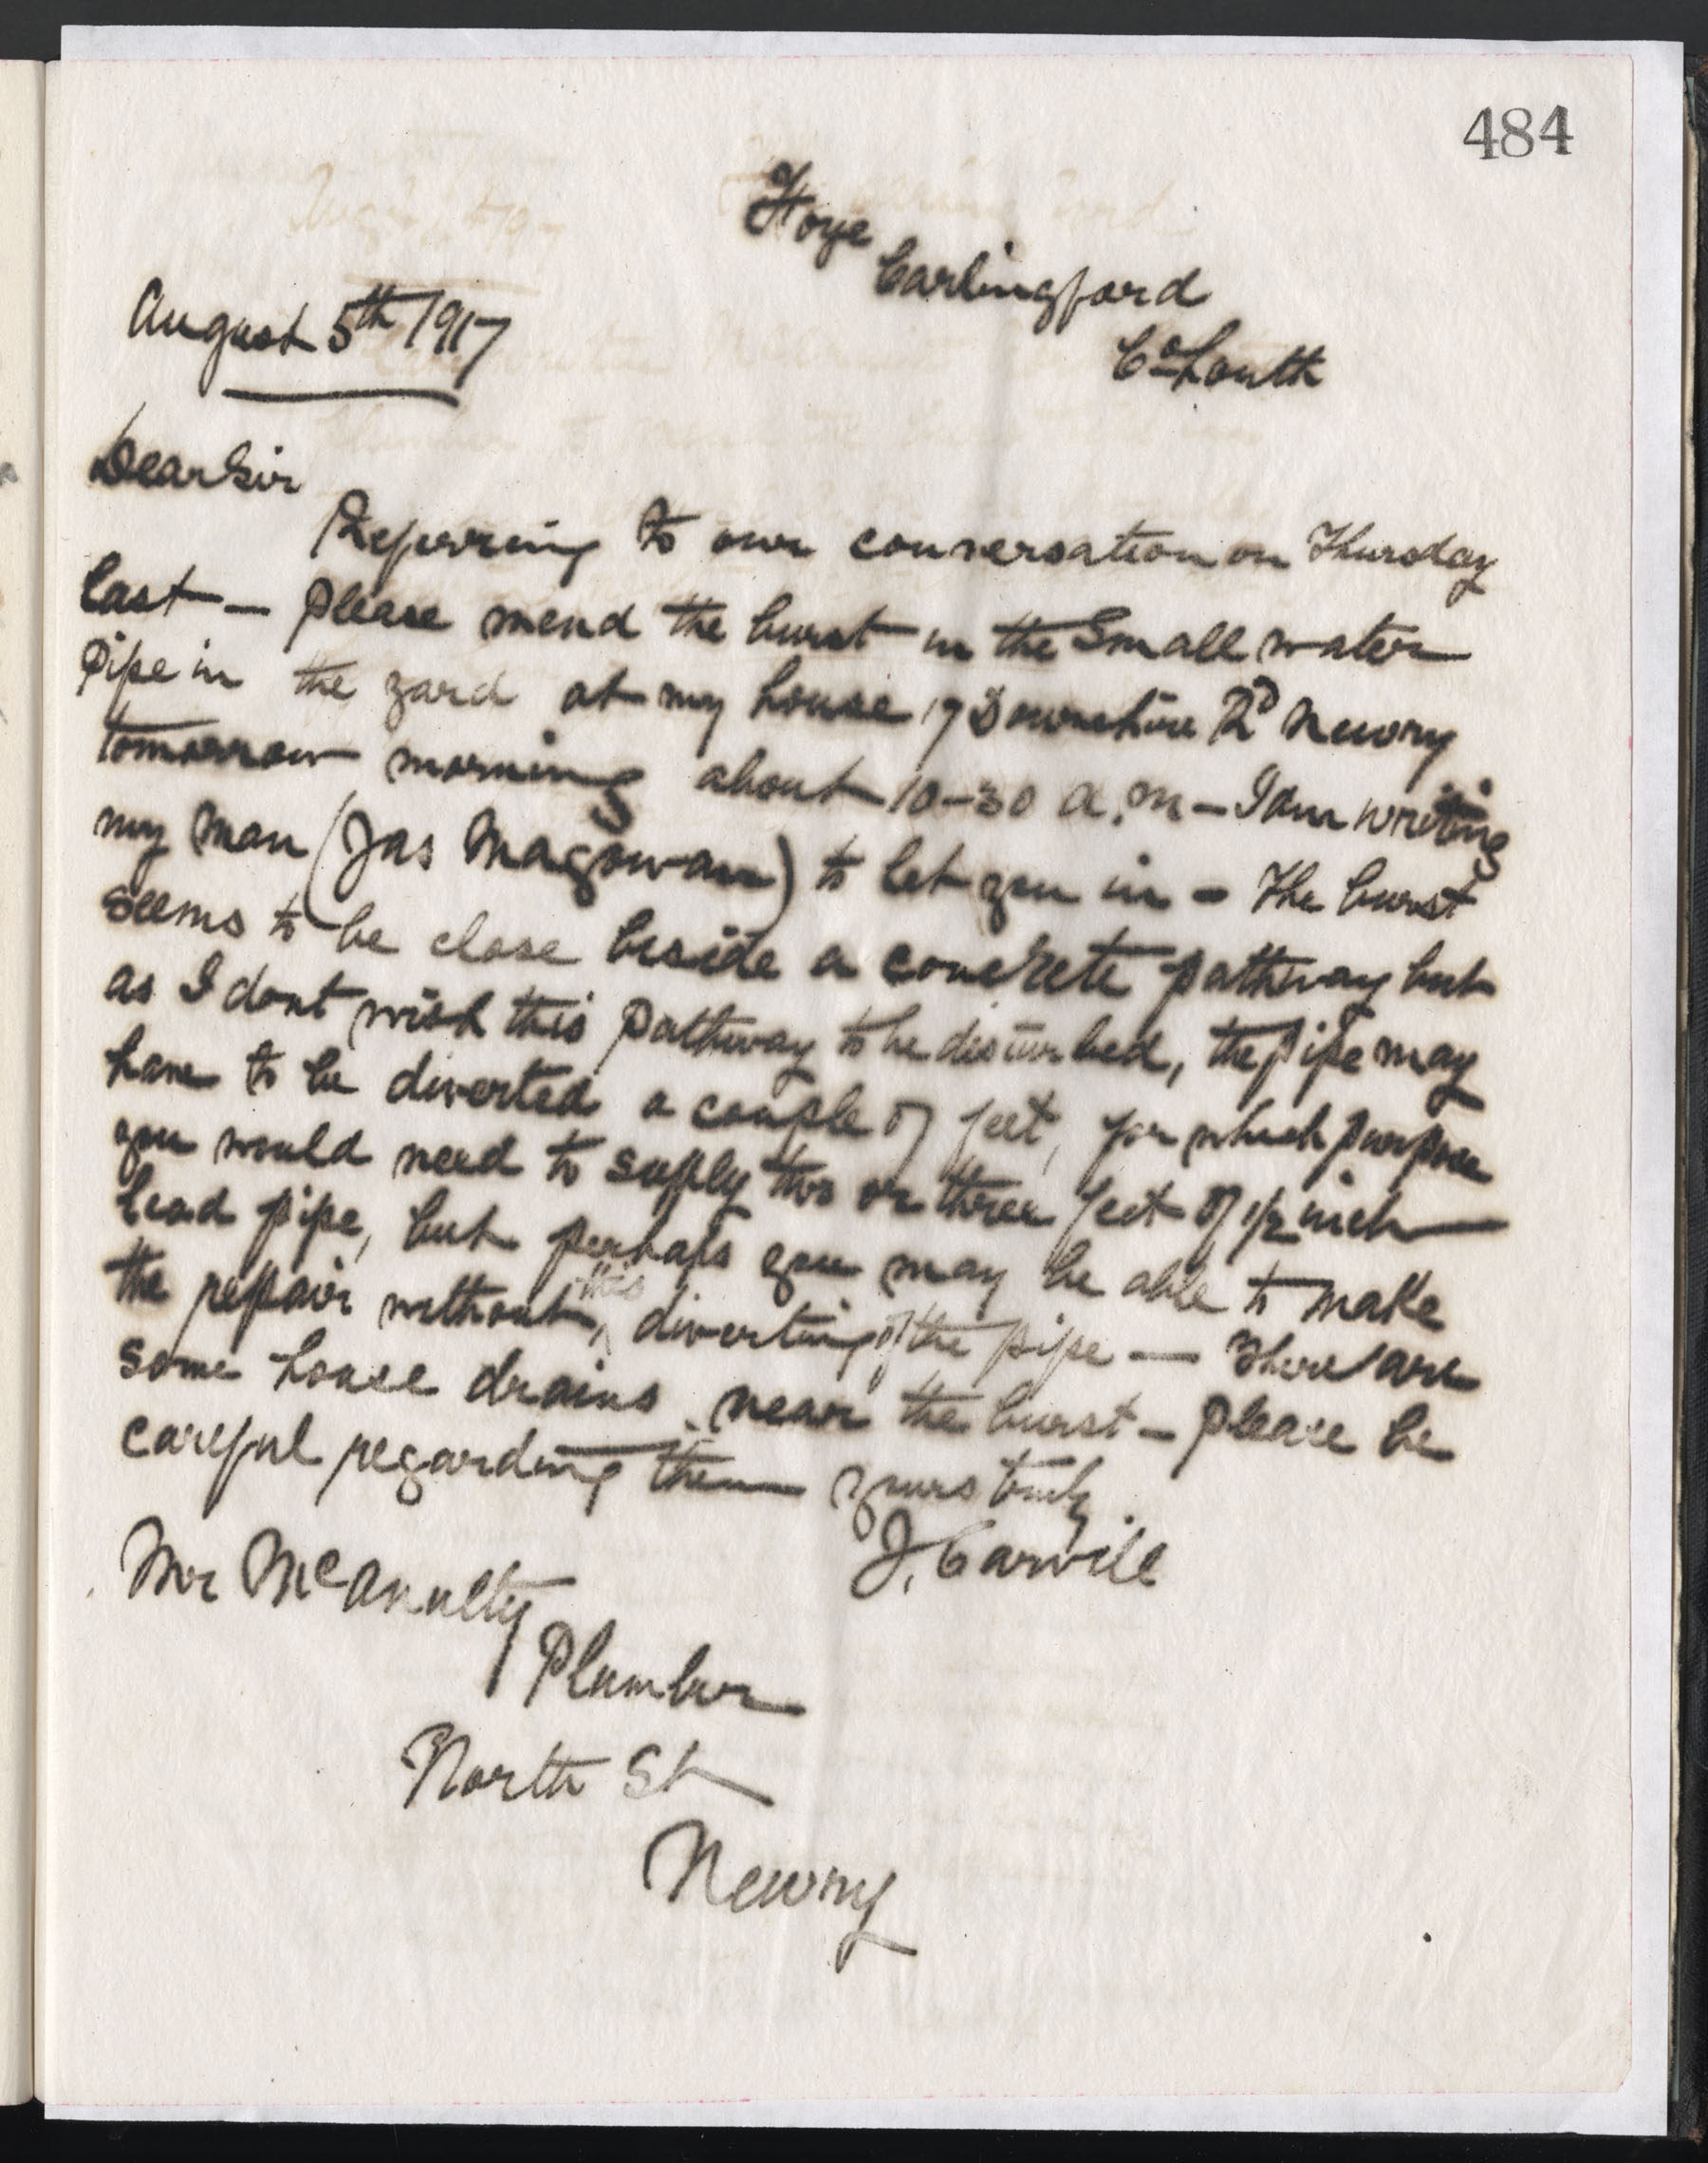 484
Foye
Carlingford
Co Louth
August 5th 1917
Dear Sir
Referring to our conversation on Thursday
last — please mend the burst in the small water
pipe in the yard at my house 17 Downshire Rd Newry
tomorrow morning about 10-30 a.m — I am writing
my man (Jas Magowan) to let you in — The burst
seems to be close beside a concrete pathway but
as I dont wish this pathway to be disturbed, the pipe may
have to be diverted a couple of feet, for which purpose
you would need to supply two or three feet of 1/2 inch
lead pipe, but perhaps you may be able to make
the repair without this diverting of the pipe — There are
some house drains near the burst — please be
careful regarding them yours truly
J. Carvill
Mr McAnulty
Plumber
North St
Newry